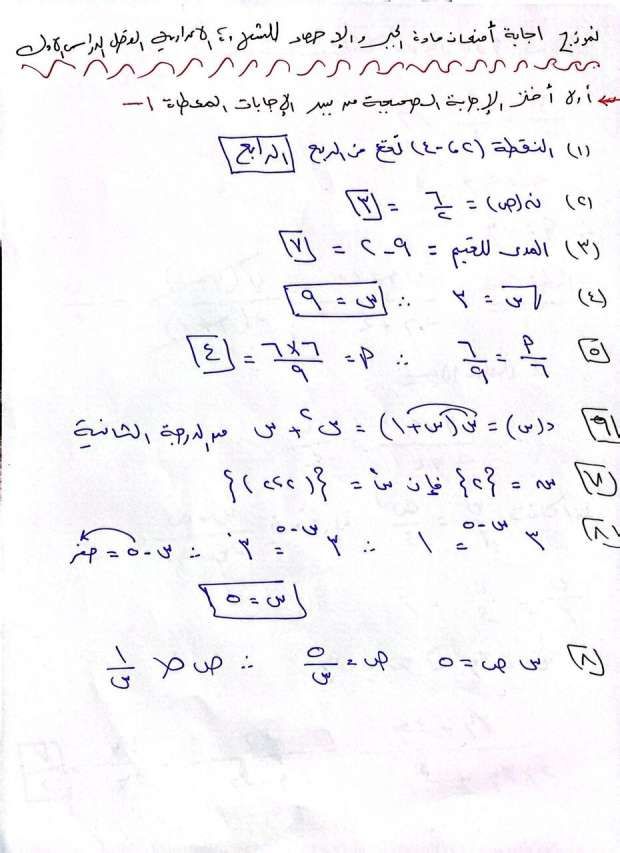 نموذج اجابة أمتحان مادة الجبر والإحصاء للشهادة الاعدادية الفصل الدراسى الاول
أولا أختر الإجابة الصحيحة من بين الإجابات المعطاة :-
(١) النقطة (٢، -٤) تقع فى الربع الرابع
(٢) ن(ص) = ٦/٢ = ٣
(٣) المدى للقيم = ٩ - ٢ = ٧
(٤) √س = ٣ ∴ س = ٩
٥ م/٦ = ٦/٩ ∴ م = ٦×٦/٩ = ٤
٦ د(س) = س(س+١) = س٢ + س من الدرجة الثانية
٧ س = {٢} فإن س٢ = {(٢،٢)}
٨ ٣ س-٥ = ١ ∴ ٣ س-٥ = ٣٠ ∴ س-٥ = صفر
س = ٥
٨ س ص = ٥ ص = ٥/س ∴ ص ∝ ١/س